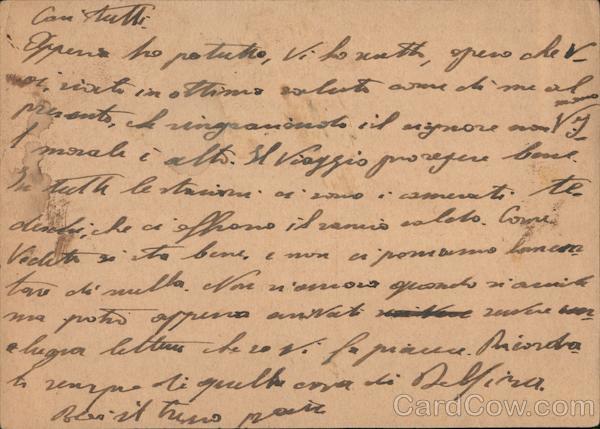 Cari tutti.
Appena ho potuto, Vi ho scritto, spero che V-
oi, siate in ottima salute come di me al
presente, che ringraziando il signore non V'è
Il morale è alto. Il Viaggio prosegue bene.
In tutte le stazioni ci sono i camerati te-
deschi, che ci offrono il rancio caldo. Come
Vedete si sta bene, e non ci possiamo lamen-
tare di nulla. Non si ancora quando si arriva
ma potrò appena arrivati scrivere una
alegra lettera che so Vi fa piacere. Ricorda-
ti sempre di quella cosa di Delfina.
il treno parte
CardCow.com